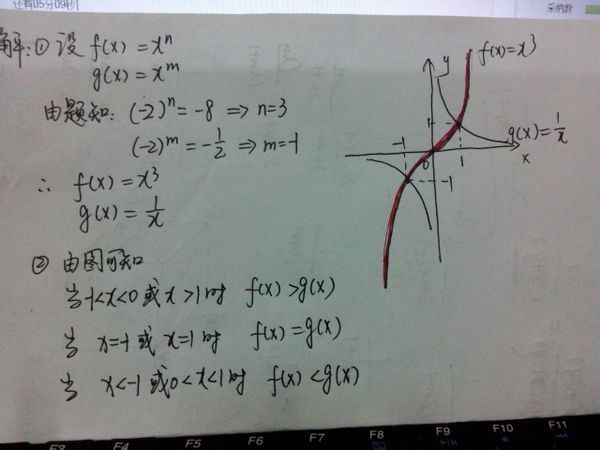 还有05分09秒
采纳数
解:① 设 f(x)=xⁿ
g(x)=xᵐ
由题知: (-2)ⁿ=-8 ⇒ n=3
(-2)ᵐ=-1/2 ⇒ m=-1
∴ f(x)=x³
g(x)=1/x
② 由图可知
当-1<x<0 或 x>1时 f(x)>g(x)
当 x=-1 或 x=1时 f(x)=g(x)
当 x<-1 或0<x<1时 f(x)<g(x)
y
f(x)=x³
1
-1
0
1
g(x)=1/x
x
-1
F3 F4 F5 F6 F7 F8 F9 F10 F11